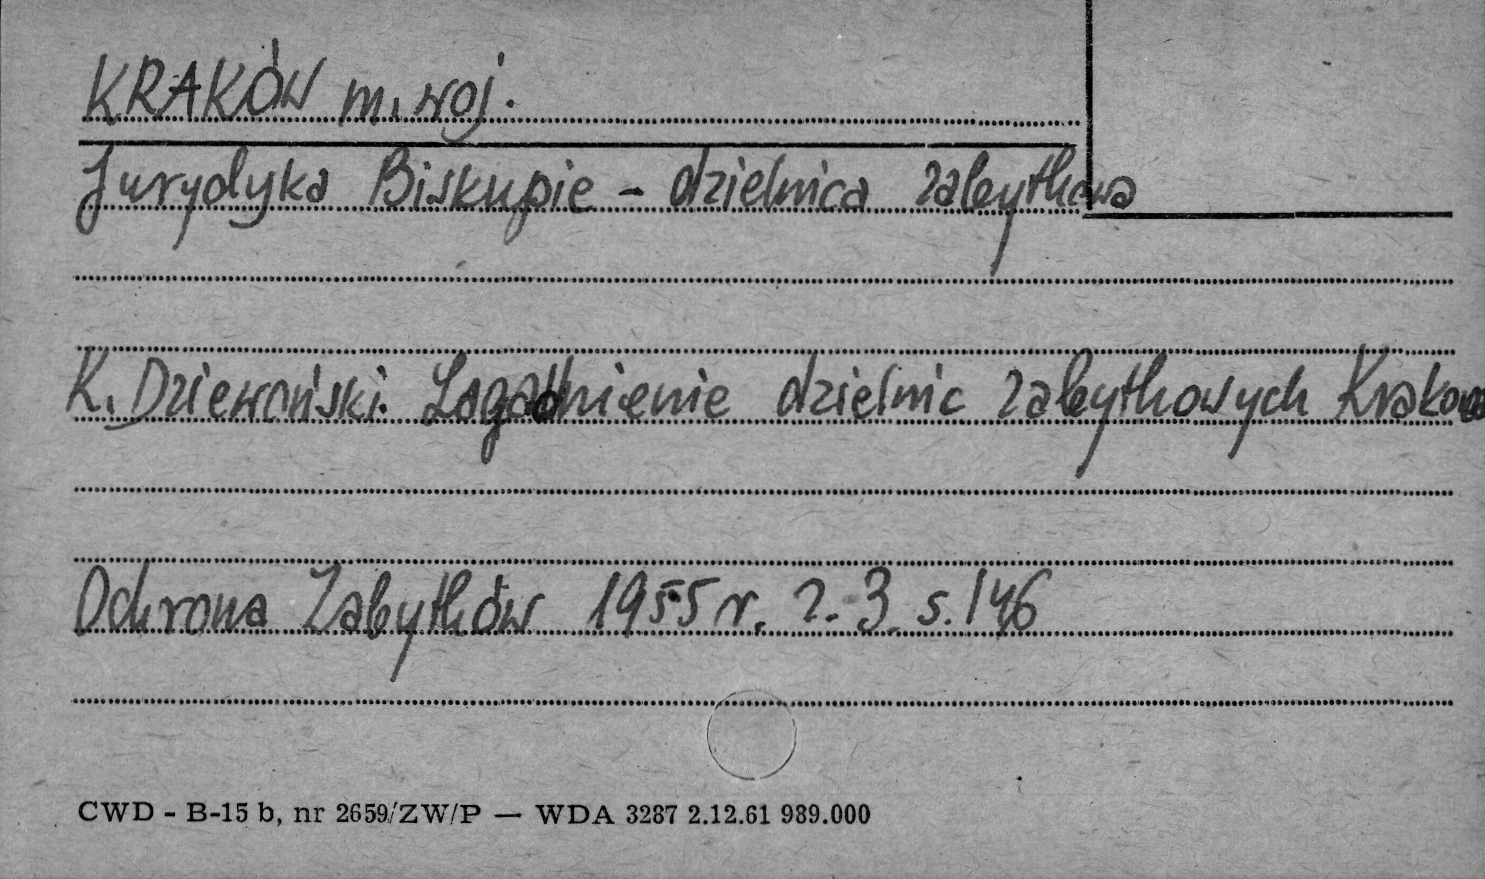 KRAKÓW m. woj.
Jurydyka Biskupie - dzielnica zabytkowa
K. Dziewoński. Zagadnienie dzielnic zabytkowych Krakowa
Ochrona Zabytków 1955 r. 2. 3. s. 146
CWD - B-15 b, nr 2659/ZW/P — WDA 3287 2.12.61 989.000